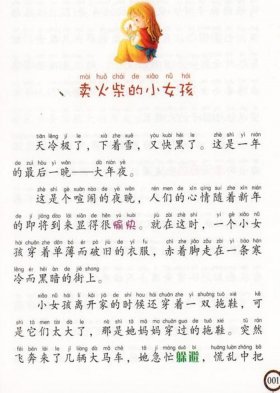 mài huǒ chái de xiǎo nǚ hái
卖火柴的小女孩
tiān lěng jí le xià zhe xuě yòu kuài hēi le zhè shì yì nián
天冷极了，下着雪，又快黑了。这是一年
de zuì hòu yì wǎn dà nián yè
的最后一晚——大年夜。
zhè shì gè xuān nào de yè wǎn rén men de xīn qíng suí zhe xīn nián
这是个喧闹的夜晚，人们的心情随着新年
de jí jiāng dào lái xiǎn de hěn yú kuài jiù zài zhè shí yí gè xiǎo nǚ
的即将到来显得很愉快。就在这时，一个小女
hái chuān zhe dān bó ér pò jiù de yī fu chì zhe jiǎo zǒu zài yì tiáo hán
孩穿着单薄而破旧的衣服，赤着脚走在一条寒
lěng ér hēi àn de jiē shang
冷而黑暗的街上。
xiǎo nǚ hái lí kāi jiā de shí hou hái chuān zhe yì shuāng tuō xié kě
小女孩离开家的时候还穿着一双拖鞋，可
shì tā men tài dà le nà shì tā mā ma chuān guo de tuō xié tū rán
是它们太大了，那是她妈妈穿过的拖鞋。突然
fēi bēn lái le jǐ liàng dà mǎ chē tā jí máng duǒ bì huāng luàn zhōng bǎ
飞奔来了几辆大马车，她急忙躲避，慌乱中把
001